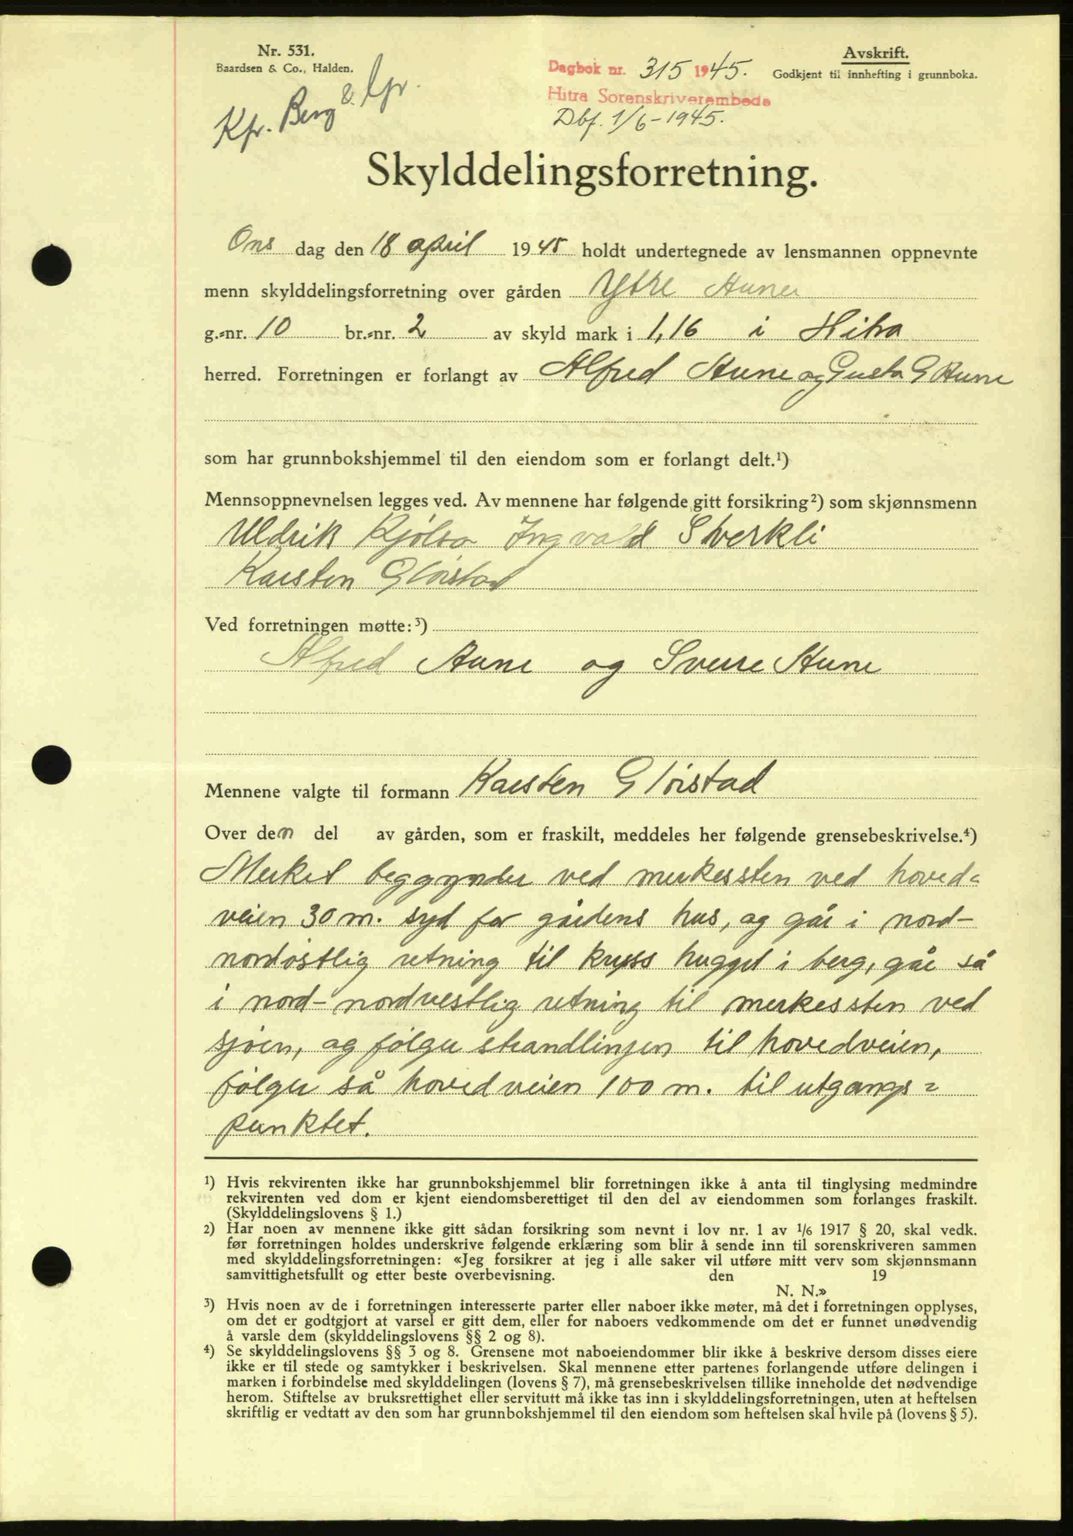 Nr. 531.
Baardsen & Co., Halden.
Kfr. Berg & Gr.
Dagbok nr. 315 1945.
Hitra Sorenskriverembede
Dbf. 1/6-1945.
Avskrift.
Godkjent til innhefting i grunnboka.
Skylddelingsforretning.
Ons dag den 18 april 1945 holdt undertegnede av lensmannen oppnevnte
menn skylddelingsforretning over gården Ytre Aune,
g.-nr. 10 br.-nr. 2 av skyld mark i 1,16 i Hitra
herred. Forretningen er forlangt av Alfred Aune og Gusta G Aune
som har grunnbokshjemmel til den eiendom som er forlangt delt.¹)
Mennsoppnevnelsen legges ved. Av mennene har følgende gitt forsikring²) som skjønnsmenn
Uldrik Kjølsø Ingvald Sverkli
Karsten Gløistad
Ved forretningen møtte:³)
Alfred Aune og Sverre Aune
Mennene valgte til formann Karsten Gløistad
Over den del av gården, som er fraskilt, meddeles her følgende grensebeskrivelse.⁴)
Merket beggynder ved merkessten ved hoved=
veien 30 m. syd for gårdens hus, og går i nord-
nordøstlig retning til kryss hugget i berg, går så
i nord-nordvestlig retning til merkessten ved
sjøen, og følger strandlinjen til hovedveien,
følger så hovedveien 100 m. til utgangs=
punktet.
¹) Hvis rekvirenten ikke har grunnbokshjemmel blir forretningen ikke å anta til tinglysing medmindre
rekvirenten ved dom er kjent eiendomsberettiget til den del av eiendommen som forlanges fraskilt.
(Skylddelingslovens § 1.)
²) Har noen av mennene ikke gitt sådan forsikring som nevnt i lov nr. 1 av 1/6 1917 § 20, skal vedk.
før forretningen holdes underskrive følgende erklæring som blir å sende inn til sorenskriveren sammen
med skylddelingsforretningen: «Jeg forsikrer at jeg i alle saker vil utføre mitt verv som skjønnsmann
samvittighetsfullt og etter beste overbevisning. den 19
N. N.»
³) Hvis noen av de i forretningen interesserte parter eller naboer ikke møter, må det i forretningen opplyses,
om det er godtgjort at varsel er gitt dem, eller for naboers vedkommende om det er funnet unødvendig
å varsle dem (skylddelingslovens §§ 2 og 8).
⁴) Se skylddelingslovens §§ 3 og 8. Grensene mot naboeiendommer blir ikke å beskrive dersom disses eiere
ikke er til stede og samtykker i beskrivelsen. Skal mennene etter partenes forlangende utføre delingen i
marken i forbindelse med skylddelingen (lovens § 7), må grensebeskrivelsen tillike inneholde det nødvendige
herom. Stiftelse av bruksrettighet eller servitutt må ikke tas inn i skylddelingsforretningen, uten at heftelsen
skriftlig er vedtatt av den som har grunnbokshjemmel til den eiendom som heftelsen skal hvile på (lovens § 5).